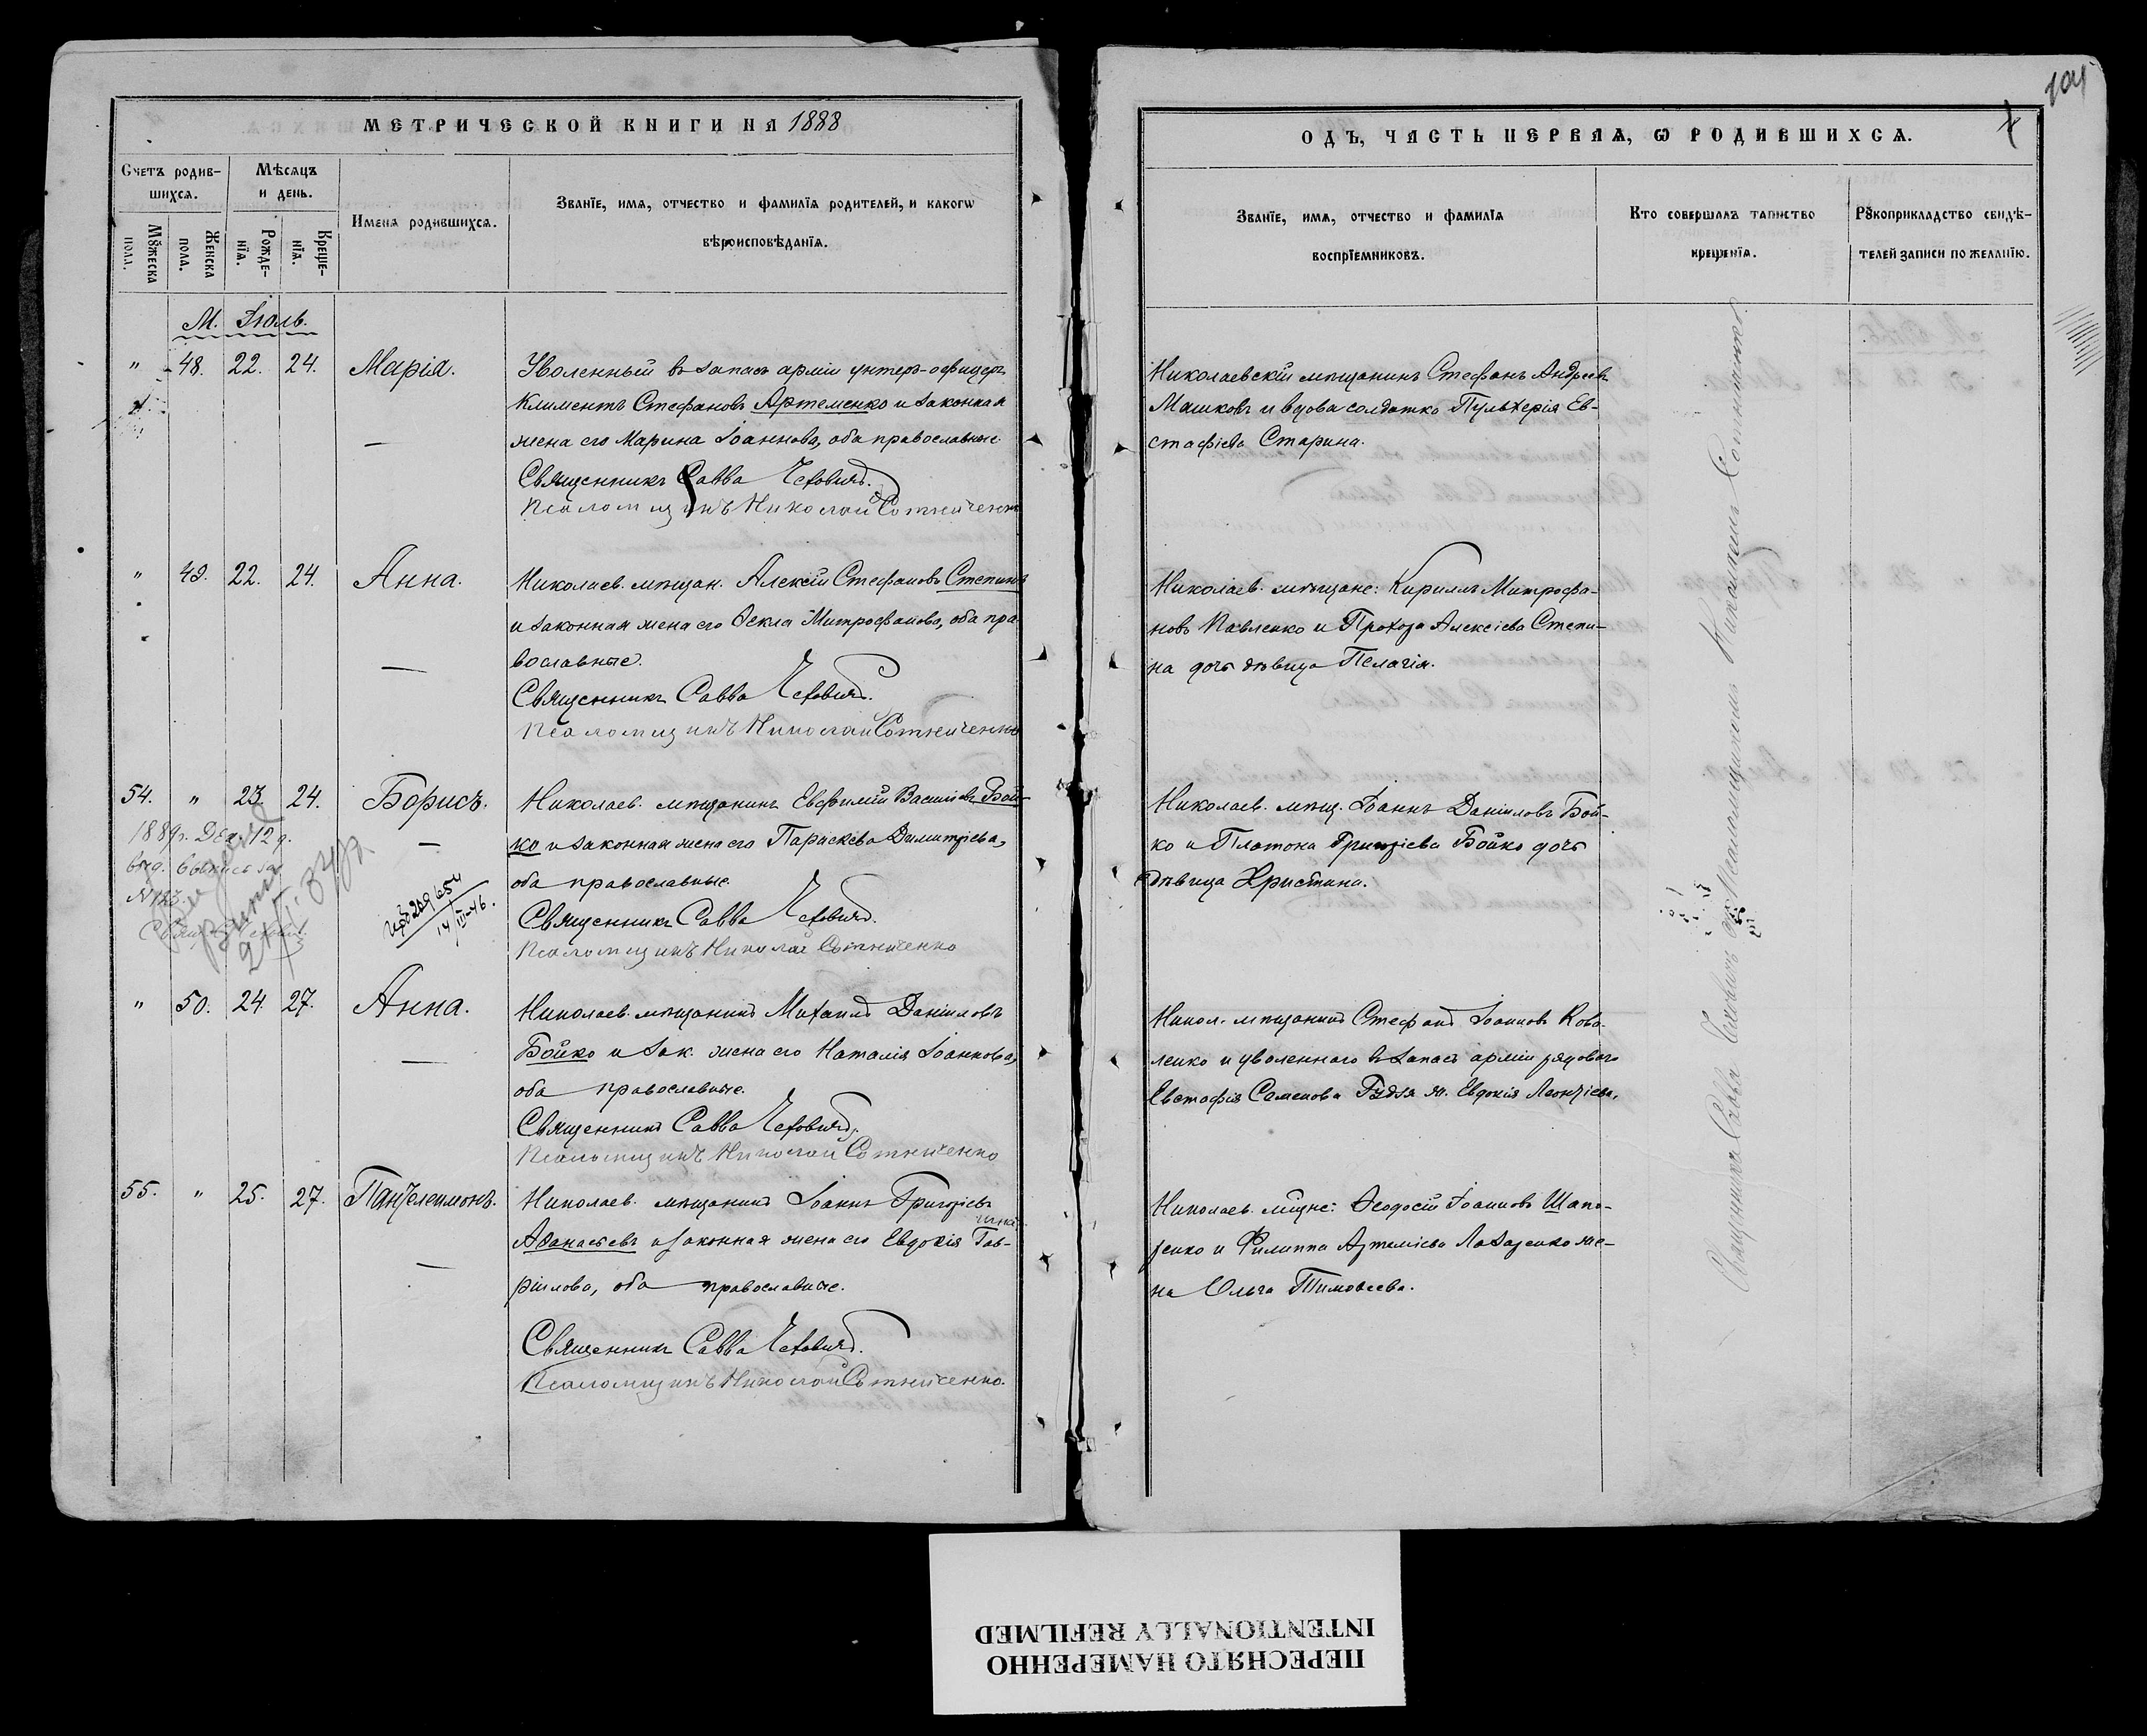 МЕТРИЧЕСКОЙ КНИГИ НА 1888
Счетъ родив-
шихся.
Мѣсяцъ
и день.
Имена родившихся.
Званїе, имя, отчество и фамилїя родителей, и какогѡ
вѣроисповѣданїя.
Мꙋжеска
пола.
Женска
пола.
Рожде-
нїя.
Креще-
нїя.
М. Іюль.
" 48. 22. 24. Марія. Уволенный въ запасъ арміи унтеръ-офицеръ
Климентъ Стефановъ Артеменко и законная
жена его Марина Іоаннова, оба православные.
Священникъ Савва Чехович.
Псаломщикъ Николай Сотниченко
" 49. 22. 24. Анна. Николаев. мѣщан. Алексій Стефановъ Степинъ
и законная жена его Ѳекла Митрофанова, оба пра
вославные.
Священникъ Савва Чехович.
Псаломщикъ Николай Сотниченко
54. " 23. 24. Борисъ. Николаев. мѣщанинъ Евфимій Василіевъ Бой-
ко и законная жена его Параскева Димитріева,
оба православные.
Священникъ Савва Чехович.
Псаломщикъ Николай Сотниченко
1889г. Дек. 12 д.
выд. выпись за
№123.
14/III-46.
" 50. 24. 27. Анна. Николаев. мѣщанинъ Михаилъ Даніиловъ
Бойко и зак. жена его Наталія Іоаннова,
оба православные.
Священникъ Савва Чехович.
Псаломщикъ Николай Сотниченко
55. " 25. 27. Пантелеимонъ. Николаев. мѣщанинъ Іоаннъ Григоріевъ
Аѳанасьевъ и законная жена его Евдокія Гав-
ріилова, оба православные.
Священникъ Савва Чехович.
Псаломщикъ Николай Сотниченко.
104
ОДЪ, ЧАСТЬ ПЕРВАЯ, Ѡ РОДИВШИХСѦ.
Званїе, имя, отчество и фамилїя
воспрїемниковъ.
Кто совершалъ таинство
крещенїя.
Рꙋкоприкладство свидѣ-
телей записи по желанїю.
Николаевскій мѣщанинъ Стефанъ Андреевъ
Машковъ и вдова солдатка Пульхерія Ев-
стафіева Старина.
Николаев. мѣщане: Кириллъ Митрофа-
новъ Павленко и Прохора Алексіева Степи-
на дочь дѣвица Пелагія.
Николаев. мѣщ. Іоаннъ Даніиловъ Бой-
ко и Платона Григоріева Бойко дочь
дѣвица Христина.
Никол. мѣщанинъ Стефанъ Іоанновъ Кова-
ленко и уволеннаго въ запасъ арміи рядового
Евстафія Семенова Гудзя ж. Евдокія Леонтіева.
Николаев. мѣщне: Ѳеодосій Іоанновъ Шапо-
ренко и Филиппа Артеміева Лазаренко же-
на Ольга Тимоѳеева.
Священникъ Савва Чеховичъ съ Псаломщикомъ Николаемъ Сотниченко
ПЕРЕСНЯТО НАМЕРЕННО
INTENTIONALLY REFILMED